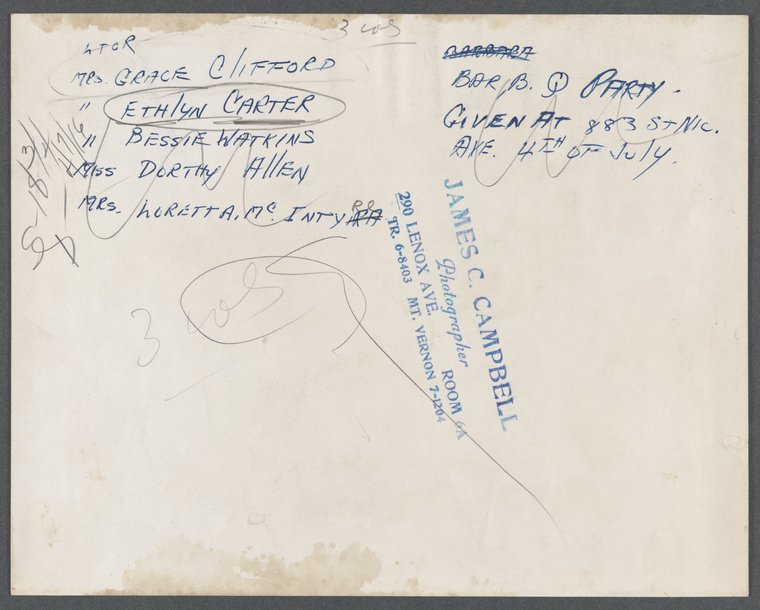 3 cols
L TO R
MRS. GRACE CLIFFORD
" ETHLYN CARTER
" BESSIE WATKINS
MISS DORTHY ALLEN
MRS. LORETTA. MC. INTYRE
BARBARA
BAR B. Q PARTY.
GIVEN AT 883 ST NIC.
AVE. 4TH OF JULY.
JAMES C. CAMPBELL
Photographer
290 LENOX AVE. ROOM 6A
TR. 6-8403 MT. VERNON 7-1204
3 cols